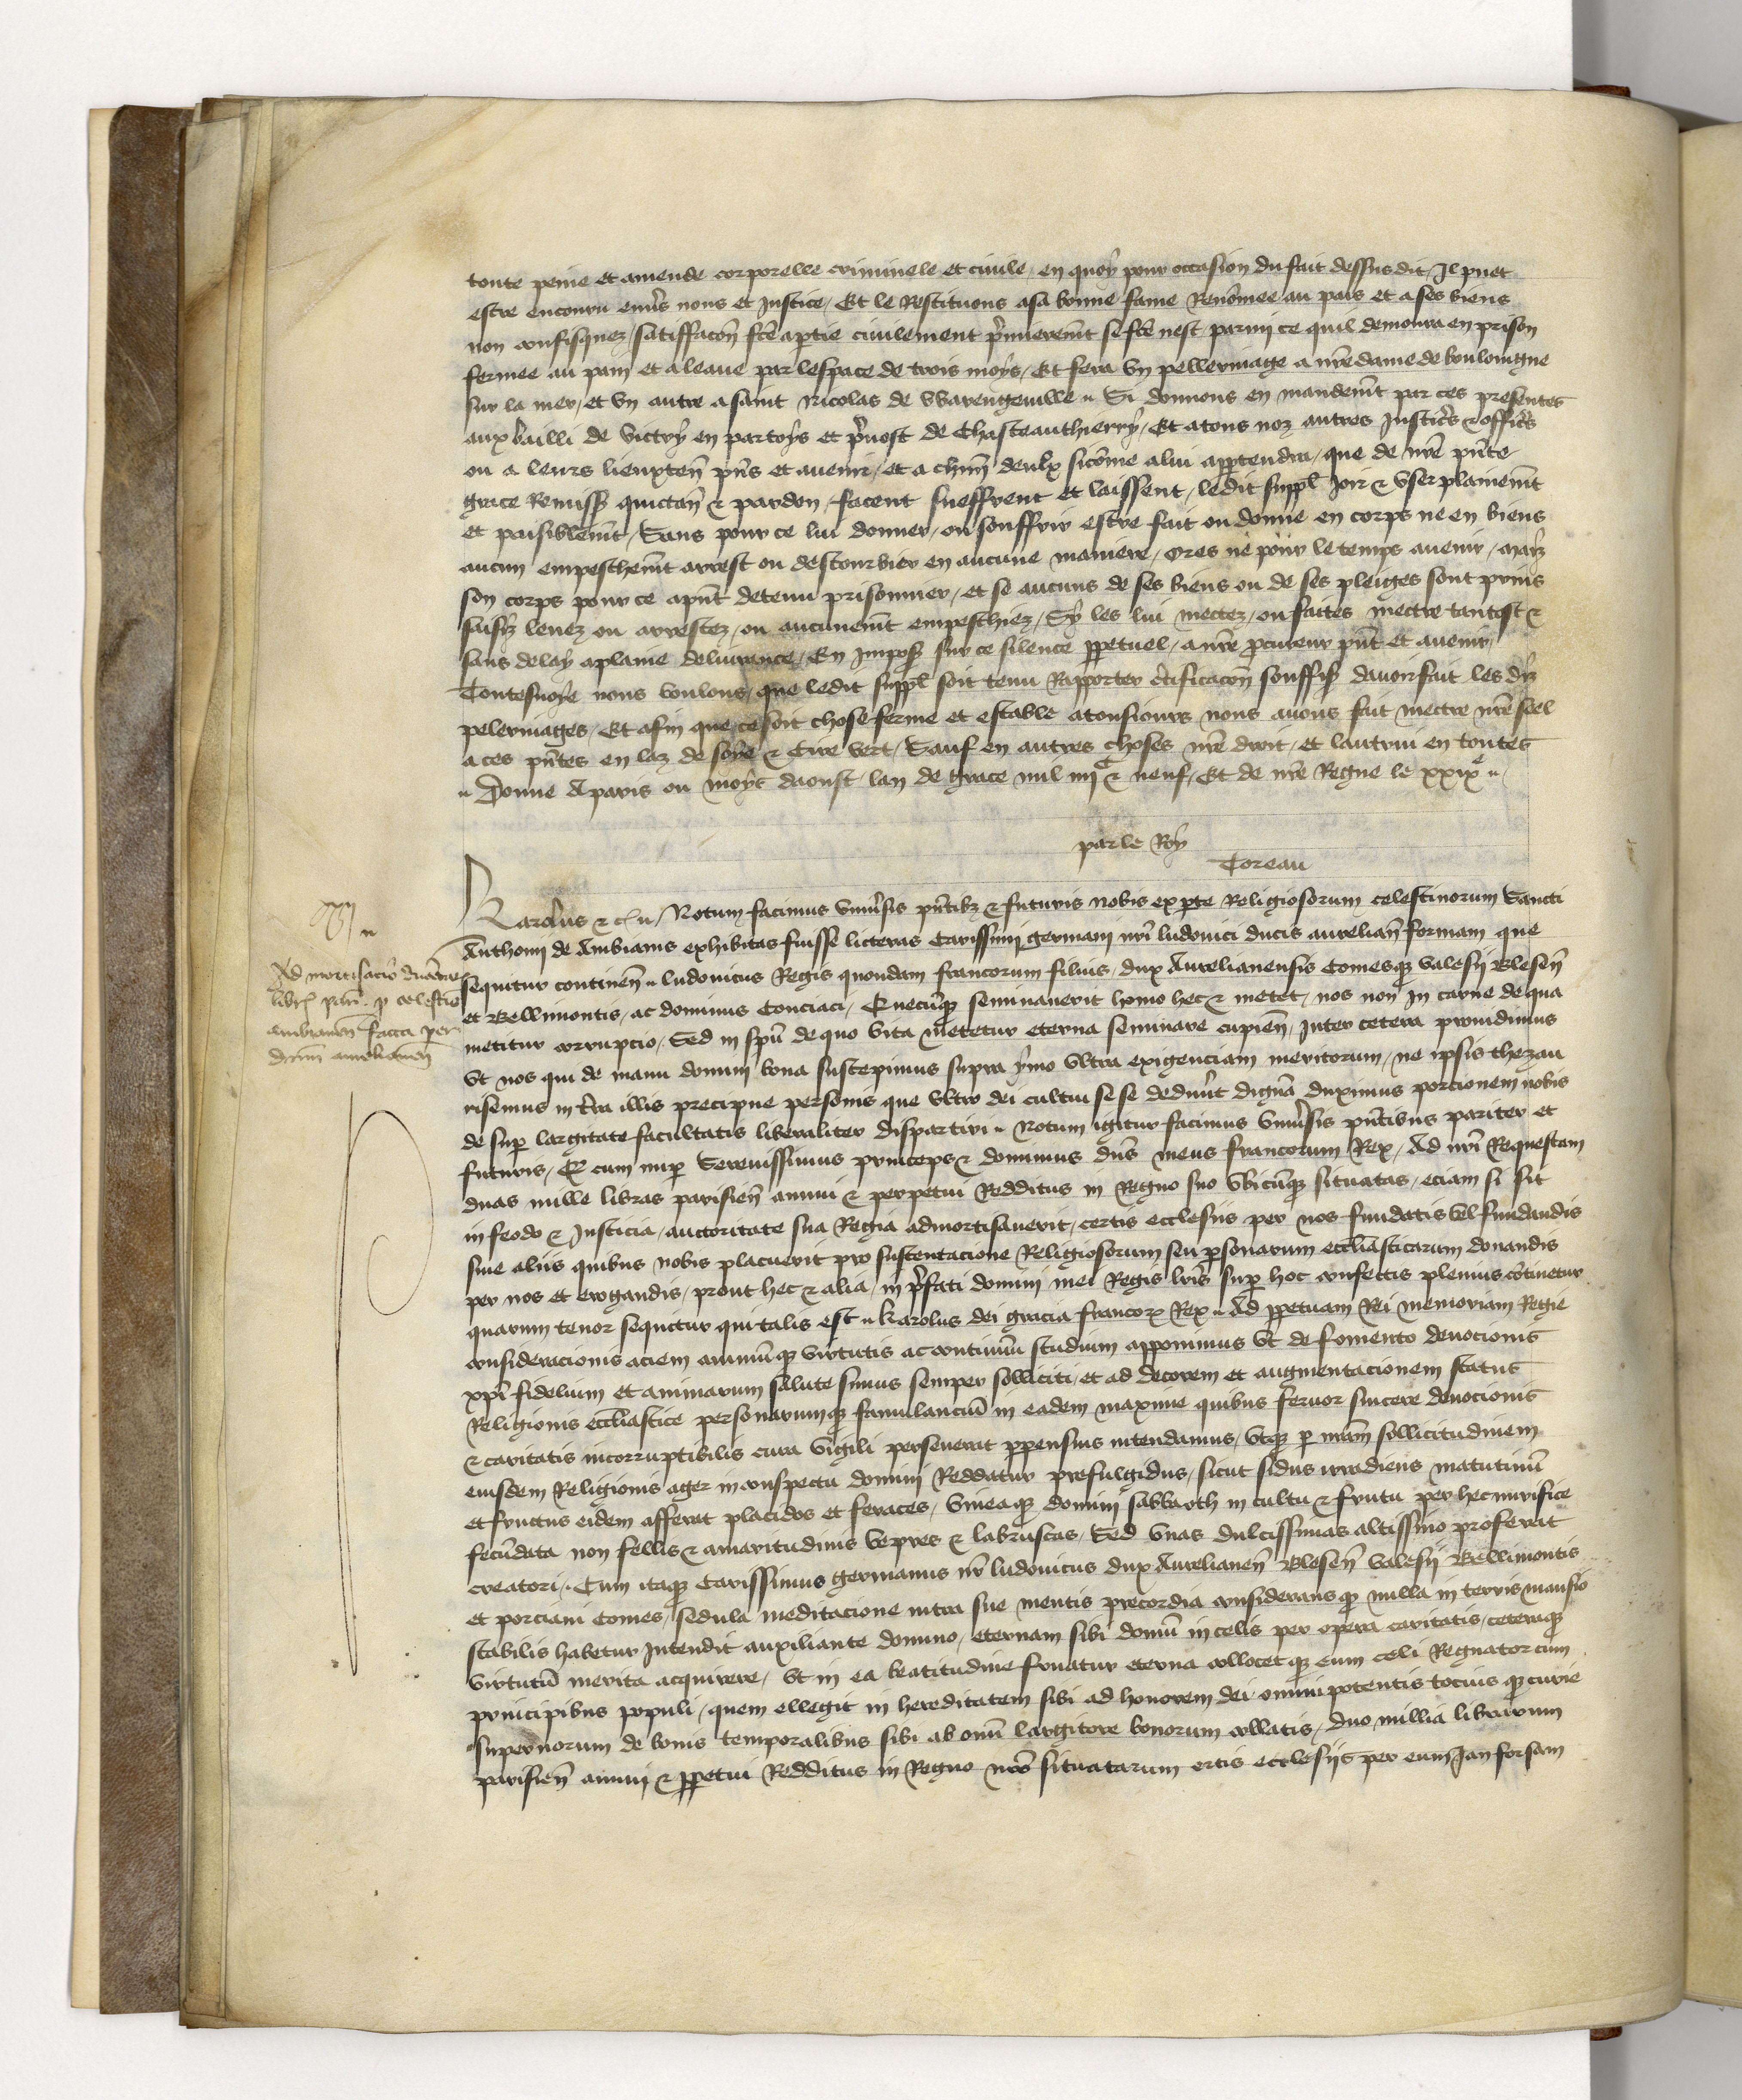 toute peine et amende corporelle criminele et civile, en quoy pour occasion du fait dessus dit, Il puet
estre encouru envers nous et Justice, Et le Restituons a sa bonne fame Renõmee au païs et a ses biens
non confisquez, satiffacõn fcẽ a ptie civilement p̃mieremt̃ se fcẽ nest, parmi ce quil demourra en prison
fermee au pain et a leaue par lespace de trois moys, Et fera un pellerinage a nrẽ dame de bouloingne
sur la mer, et un autre a saint Nicolas de Warengeville. Si donnons en mandemt̃ par ces presentes
aux bailli de Victry en partoys et pvost de Chasteauthierry, Et a tous noz autres Justicrs̃ & officrs̃
ou a leurs lieuxten̄ pñs et avenir, et a chũn deulx sicõme a lui apptendra, que de nrẽ pñte
grace Remissõ quictañ & pardon, facent sueffrent et laissent, ledit suppl Joir & user plainemt̃
et paisiblemt̃, Sans pour ce lui donner, ou souffrir estre fait ou donne en corps ne en biens
aucun empeschemt̃ arrest ou destourbier en aucune maniere, ores ne pour le temps avenir, mais
son corps pour ce apñt detenu prisonnier, et se aucuns de ses biens ou de ses pleiges sont prins
saisiz levez ou arrestez, ou aucunemt̃ empeschiez, Sy les lui mectez, ou faites mectre tantost &
sans delay a plaine delivrance, En Imposãt sur ce silence ppetuel, a nrẽ pcureur pñt et avenir,
Toutesvoye nous voulons, que ledit suppl soit tenu Rapporter ctificacõn souffisãt davoir fait les diz
pelerinages, Et afin que ce soit chose ferme et estable a tousjours nous avons fait mectre nrẽ seel
a ces pñtes en laz de soye & Cire vert, Sauf en autres choses nrẽ droit, et lautrui en toutes
Donne A paris ou moys daoust, lan de grace mil iiijc & neuf, Et de nrẽ Regne le xxixe
par le Roy
Toreau
Karolus &c. Notum facimus univsis pñtibz & futuris nobis ex pte Religiosorum celestinorum Sancti
Anthonii de Ambianis exhibitas fuisse licteras Carissimi germani nrĩ ludovici ducis aurelian̄ formam que
Ad mortisacio duarum
libr̃ par̃. p celestĩs
ambianen̄ facta per
ducem aurelianen̄
sequitur continen̄ ludovicus Regis quondam francorum filius, dux Aurelianensis Comesqz valesij Blesen̄
et Bellimontis, ac dominus Conciaci, Quecũqz seminaverit homo hec & metet, nos non In carne de qua
metitur corrupcio, Sed in spũ de quo vita metetur eterna seminare cupien̄, Inter cetera providimus
Ut nos qui de manu domini bona suscepimus supra ymo ultra exigenciam meritorum, ne ipsis thezau
risemus in tra illis precipue personis que ultro dei cultui se se dedunt dignã duximus porcionem nobis
de sup largitate facultatis liberaliter dispartiri. Notum igitur facimus univsis pñtibus pariter et
futuris, Qz cum nup Serenissimus princeps & dominus dñs meus francorum Rex, Ad nrĩ Requestam
duas mille libras parisien̄ annui & perpetui Redditus in Regno suo ubicũqz situatas, eciam si sit
in feodo & Justicia, auctoritate sua Regia admortisaverit, certis ecclesiis per nos fundatis vel fundandis
sive aliis quibus nobis placuerit pro sustentacione Religiosorum seu psonarum ecclĩasticarum donandis
per nos et erogandis, prout hec & alia, in pfati domini mei Regis lrĩs sup hoc confectis plenius cõtinetur
quarum tenor sequitur qui talis est. Karolus dei gracia francorz Rex. Ad ppetuam Rei memoriam Regie
consideracionis aciem animũqz virtutis ac continuũ studium apponimus ut de fomento devocionis
xpĩ fidelium et animarum salute simus semper solliciti, et ad decorem et augmentacionem status
Religionis ecclĩastice personarumqz famulanciũ in eadem maxime quibus fervor sincere devocionis
& caritatis incorruptibilis cura vigili perseverat ppensius intendamus, utqz p nrãm sollicitudinem
eiusdem Religionis ager in conspectu domini Reddatur prefulgidus, sicut sidus irradiens matutinũ
et fructus eidem afferat placidos et feraces, vineaqz domini sabbaoth in cultu & fructu per hec mirifice
fecũdata non fellis & amaritudinis vepres & labruscas, Sed uvas dulcissimas altissimo proferat
creatori. Cum itaqz Carissimus germanus nr̃ ludovicus dux Aurelianen̄ Blesen̄ valesij Bellimontis
et porciani Comes, sedula meditacione intra sue mentis precordia considerans qz nulla in terris mansio
stabilis habetur Intendit auxiliante domino, eternam sibi domũ in celis per opera caritatis, ceteraqz
virtutũ merita acquirere, ut in ea beatitudine fruatur eterna collocetqz eum celi Regnator cum
principibus populi, quem ellegit in hereditatem sibi ad honorem dei omnipotentis tociusqz curie
supernorum de bonis temporalibus sibi ab omĩ largitore bonorum collatis, duo millia librarum
parisien̄ annui & ppetui Redditus in Regno nrõ situatarum certis ecclesijs per eum Jam forsam